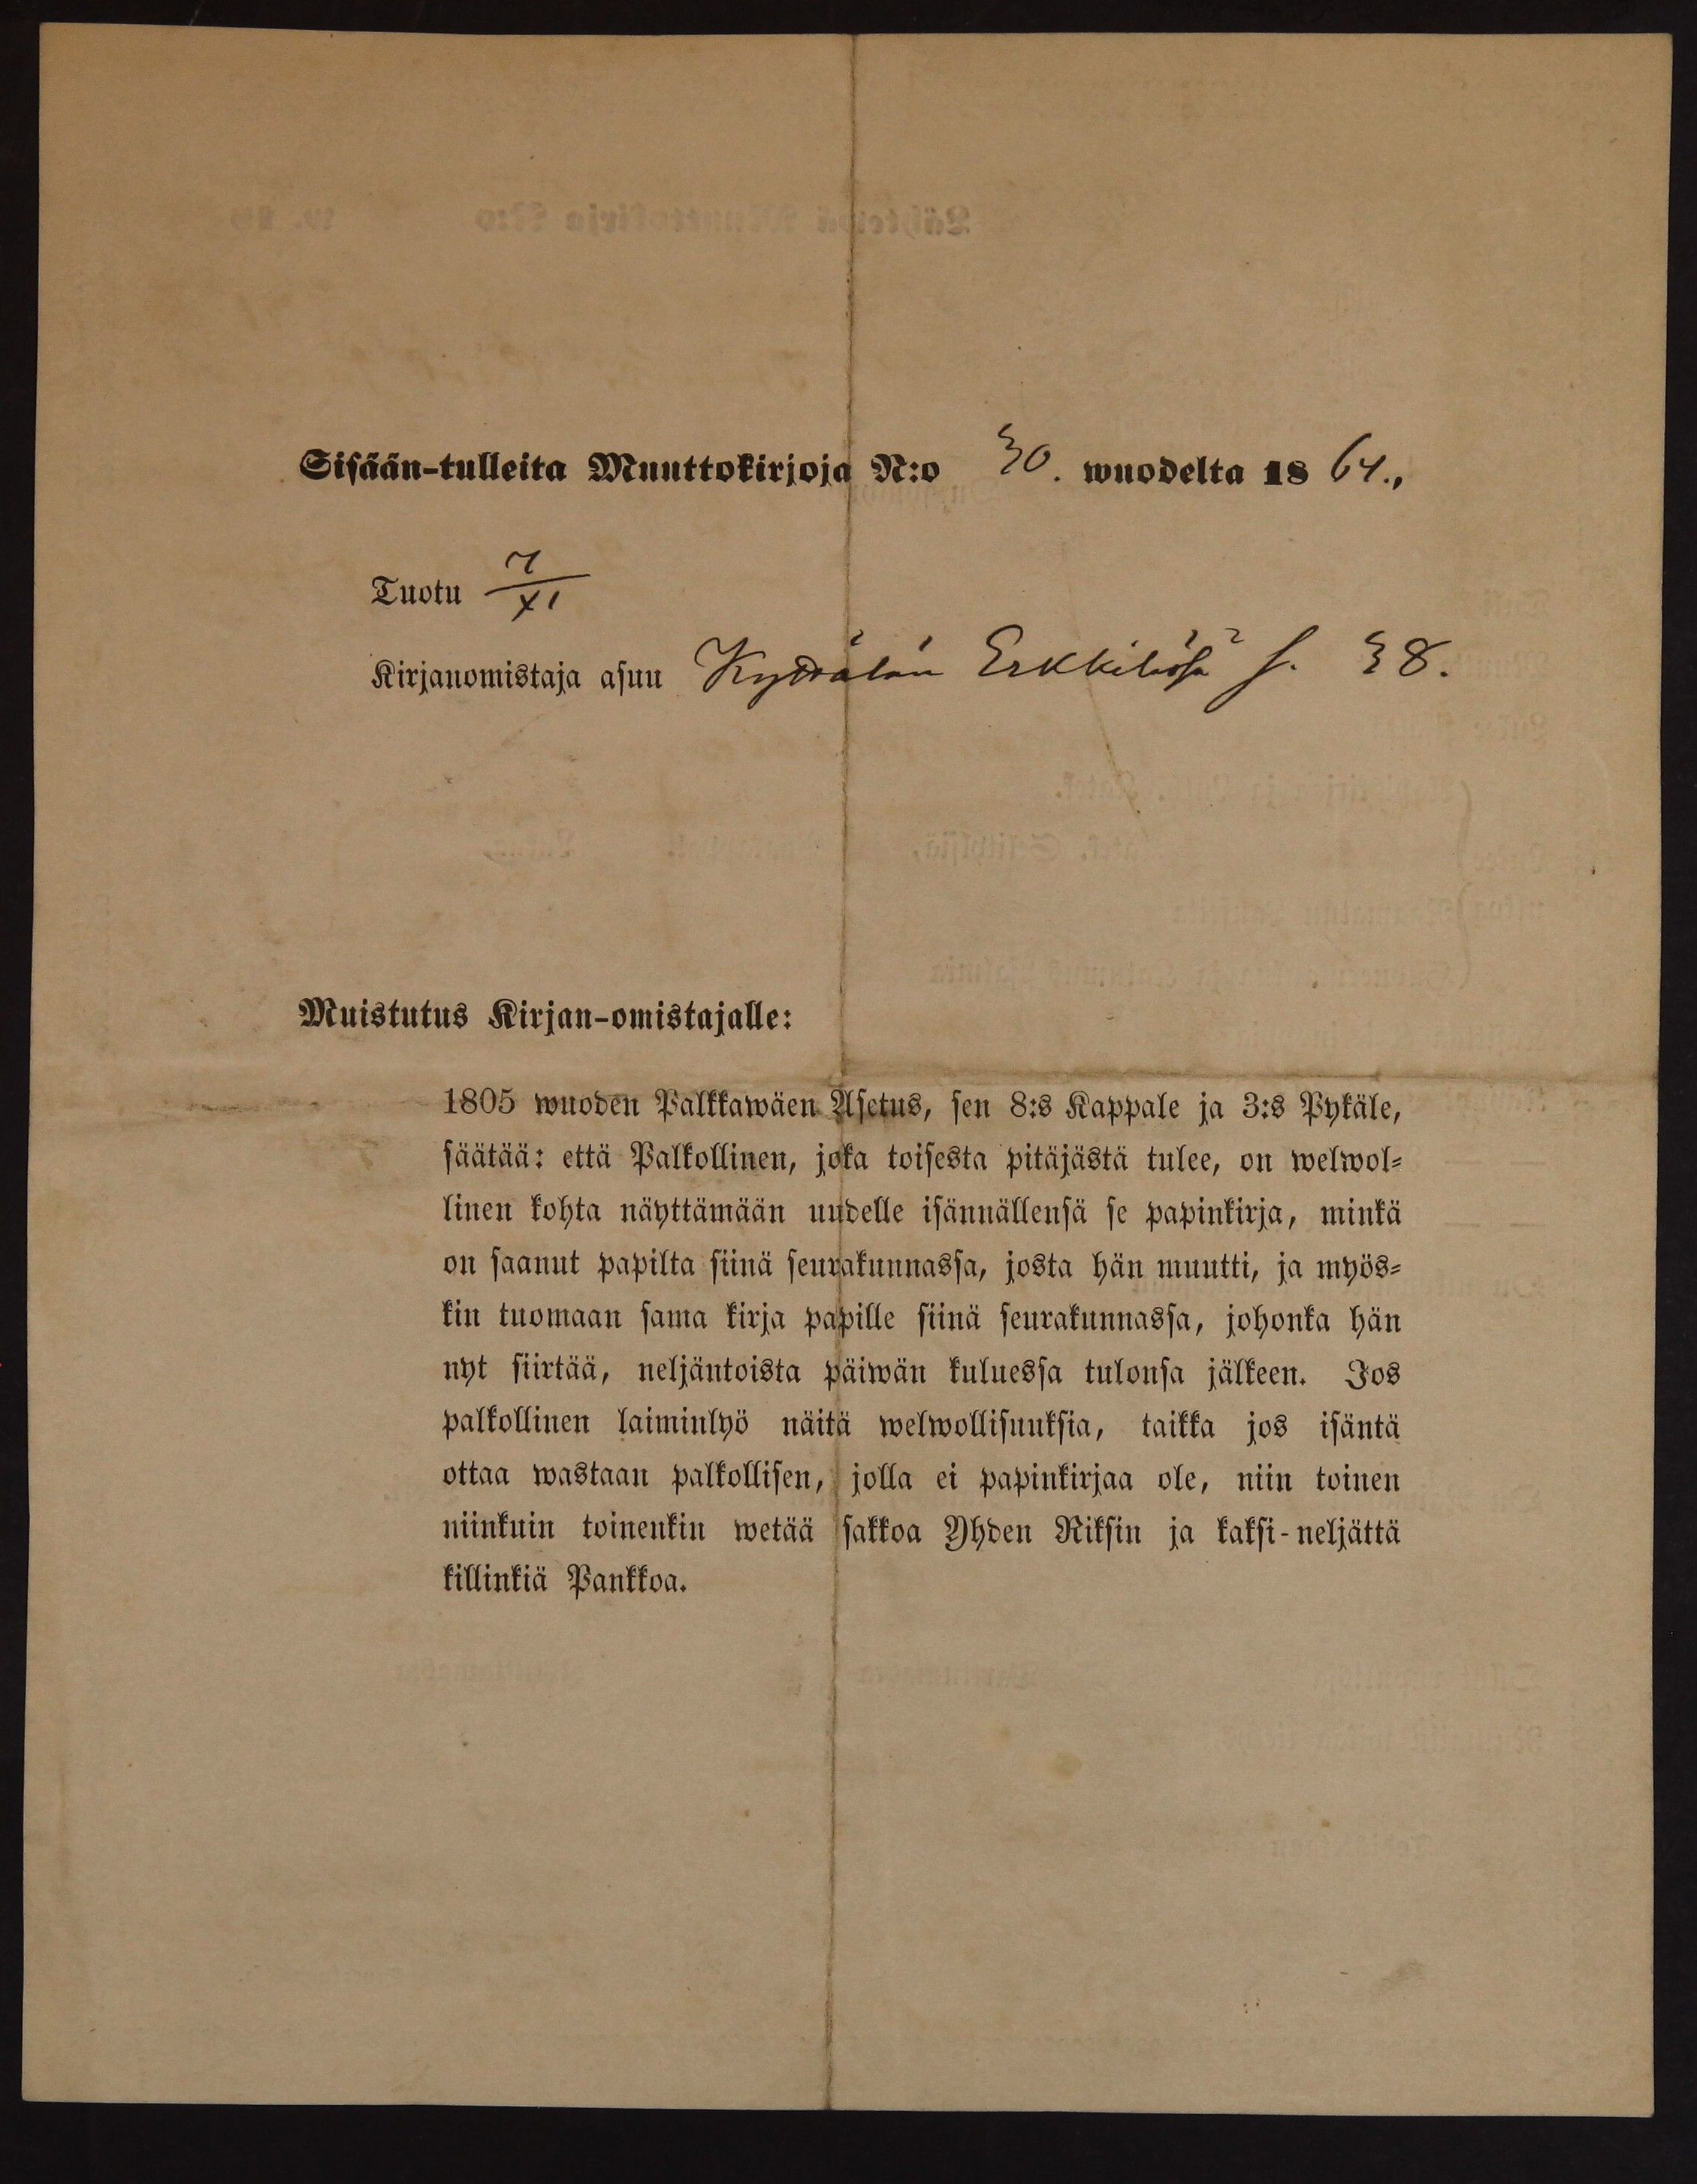 Sisään-tulleita Muuttokirjoja N:o 30. wuodelta 18 64.,
Tuotu 7/XI
Kirjanomistaja asuu Kyttälän Erkkilässä s. 38.
Muistutus Kirjan-omistajalle:
1805 wuoden Palkkawäen Asetus, sen 8:s Kappale ja 3:s Pykäle,
säätää: että Palkollinen, joka toisesta pitäjästä tulee, on welwol=
linen kohta näyttämään uudelle isännällensä se papinkirja, minkä
on saanut papilta siinä seurakunnassa, josta hän muutti, ja myös=
kin tuomaan sama kirja papille siinä seurakunnassa, johonka hän
nyt siirtää, neljäntoista päiwän kuluessa tulonsa jälkeen. Jos
palkollinen laiminlyö näitä welwollisuuksia, taikka jos isäntä
ottaa wastaan palkollisen, jolla ei papinkirjaa ole, niin toinen
niinkuin toinenkin wetää sakkoa Yhden Riksin ja kaksi-neljättä
killinkiä Pankkoa.